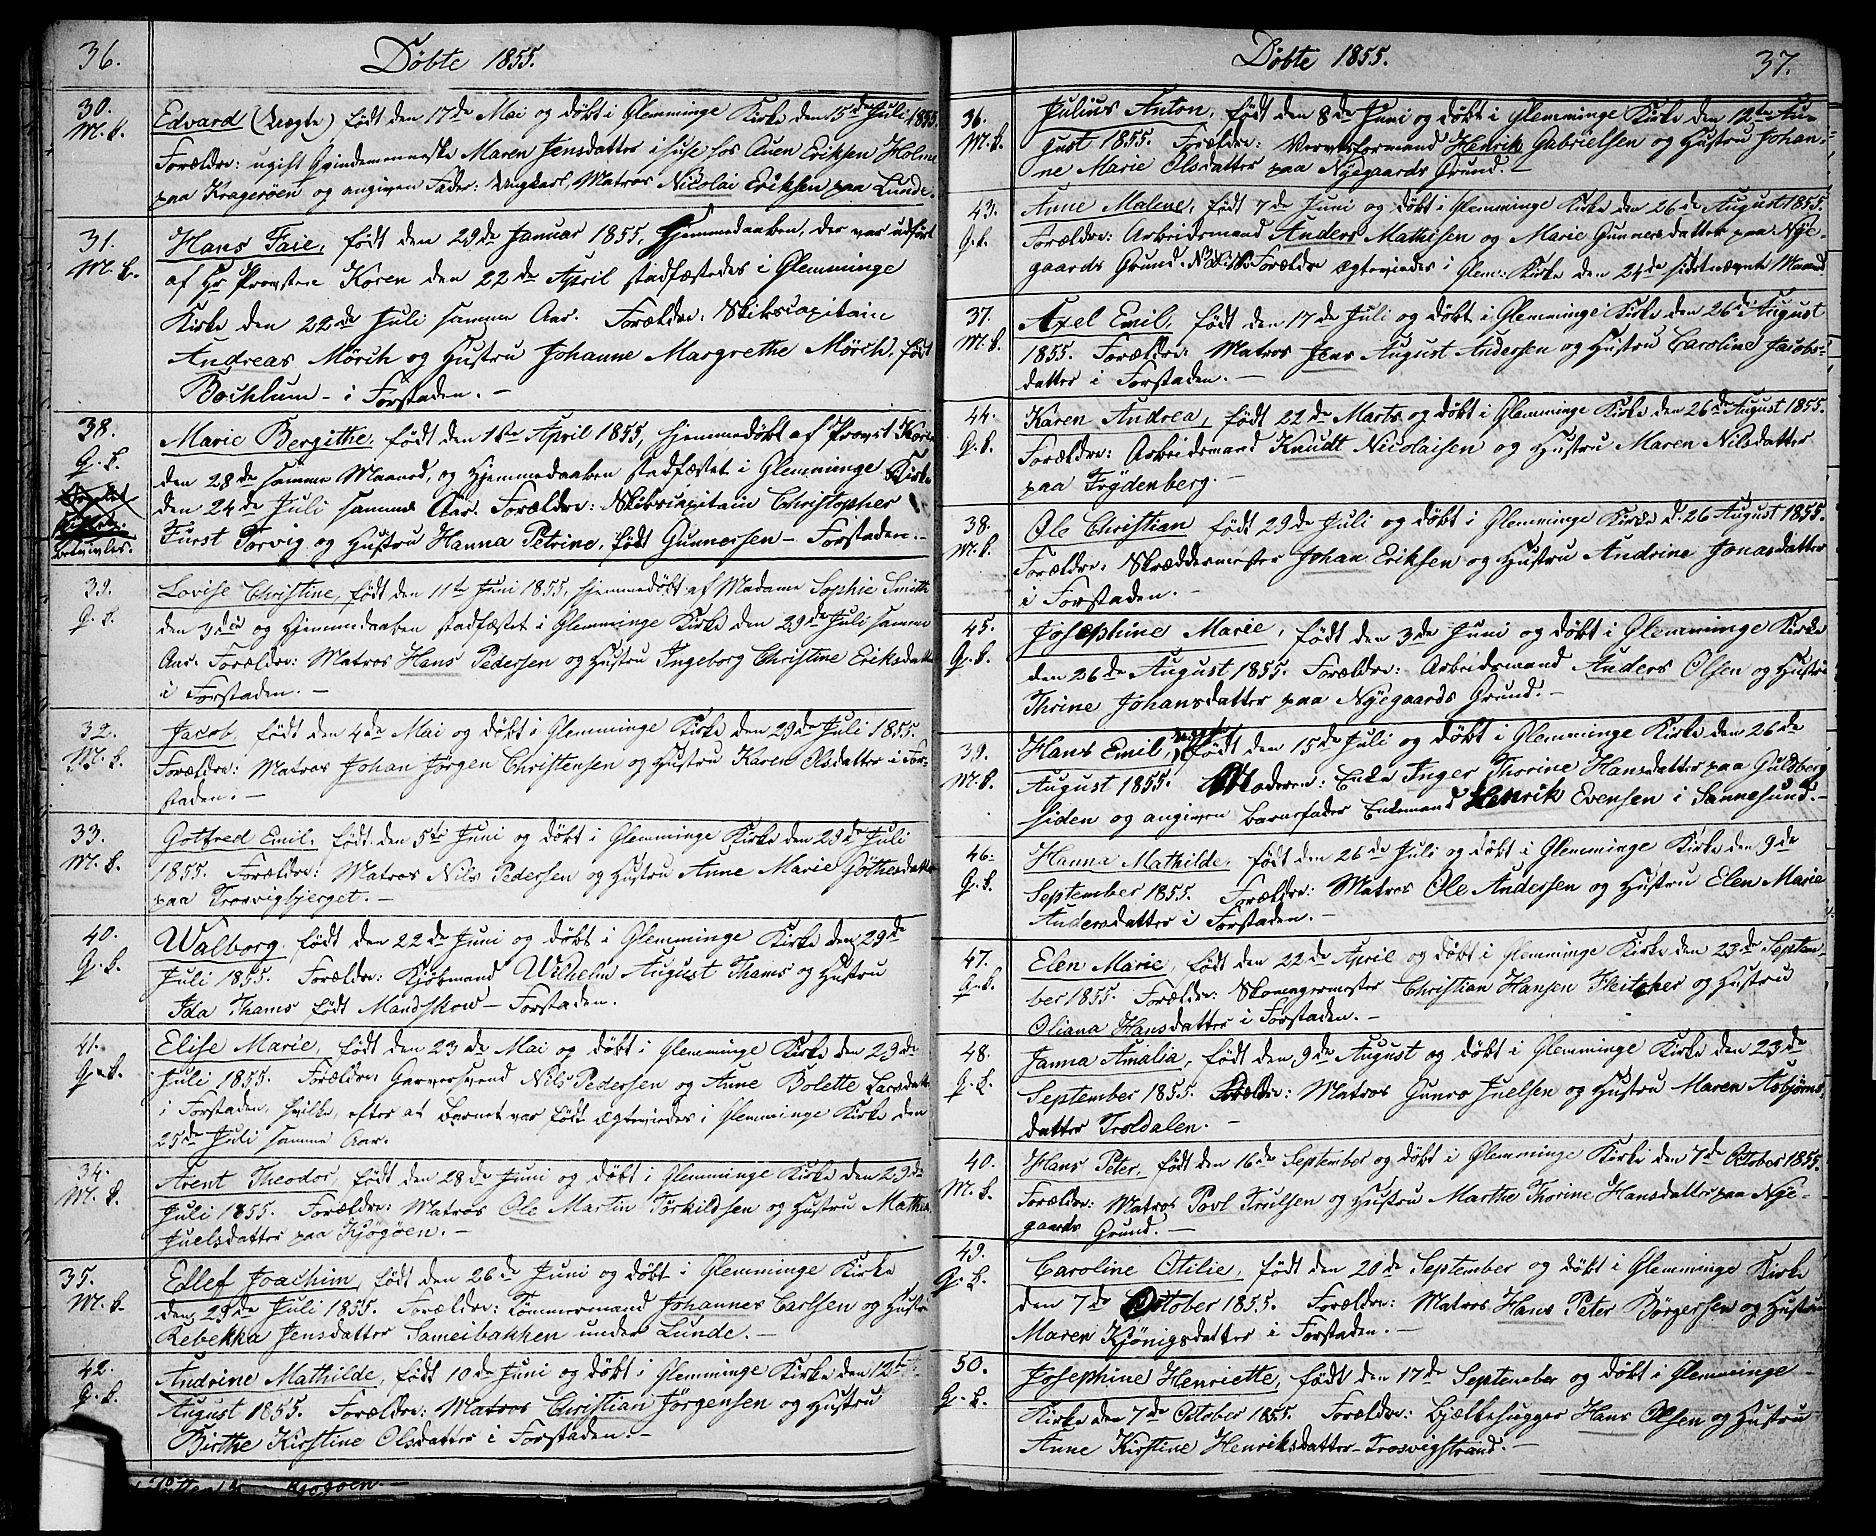 36.
Döbte 1855.
30.
M. K.
Edvard (Uægte) født den 17de Mai og döbt i Glemminge Kirke den 15de Juli 1855.
Forældre: ugift Qvindemenneske Maren Jensdatter i huse hos Auen Eriksen Holme
paa Kragerøen og angiven Fader: Ungkarl, Matros Nicolai Eriksen paa Lunde.
31.
M. K.
Hans Faie, født den 29de Januar 1855, Hjemmedaaben, der var udført
af Hr Provsten Koren den 22de April stadfæstedes i Glemminge
Kirke den 22de Juli samme Aar. Forældre: Skibscapitain
Andreas Mörch og Hustru Johanne Margrethe Mörch, født
Bochlum - i Forstaden. -
38.
Q. K.
Marie Bergithe, født den 1ste April 1855, hjemmedöbt af Provst Koren
den 28de samme Maaned, og Hjemmedaaben stadfæstet i Glemminge Kirke
den 24de Juli samme Aar. Forældre: Skibscapitain Christopher
Fürst Torvig og Hustru Hanna Petrine, født Gunnersen - Forstaden. -
39.
Q. K.
Lovise Christine, født den 11te Juni 1855, hjemmedöbt af Madame Sophie Smith
den 3die og Hjemmedaaben stadfæstet i Glemminge Kirke den 29de Juli samme
Aar. Forældre: Matros Hans Pedersen og Hustru Ingeborg Christine Eriksdatter
i Forstaden. -
32.
M. K.
Jacob, født den 4de Mai og döbt i Glemminge Kirke den 29de Juli 1855.
Forældre: Matros Johan Jörgen Christensen og Hustru Karen Olsdatter i For-
staden. -
33.
M. K.
Gotfred Emil, født den 5te Juni og döbt i Glemminge Kirke den 29de Juli
1855. Forældre: Matros Nils Pedersen og Hustru Anne Marie Göthesdatter
paa Trosvigbjerget. -
40.
Q. K.
Walborg, født den 22de Juni og döbt i Glemminge Kirke den 29de
Juli 1855. Forældre: Kjöbmand Wilhelm August Thams og Hustru
Ida Thams født Mandskow - Forstaden.
41.
Q. K.
Elise Marie, født den 23de Mai og döbt i Glemminge Kirke den 29de
Juli 1855. Forældre: Garversvend Nils Pedersen og Anne Bolette Larsdatter
i Forstaden, hvilke, efter at Barnet var født ægteviedes i Glemminge Kirke den
25de Juli samme Aar.
34.
M. K.
Arent Theodor, født den 28de Juni og döbt i Glemminge Kirke den 29de
Juli 1855. Forældre: Matros Ole Martin Törkildsen og Hustru Mathea
Juelsdatter paa Kjögöen. -
35.
M. K.
Edlef Joachim, født den 26de Juni og döbt i Glemminge Kirke
den 29de Juli 1855. Forældre: Tömmermand Johannes Carlsen og Hustru
Rebekka Jensdatter Sameibakken under Lunde. -
42.
Q. K.
Andrine Mathilde, født 10de Juni og döbt i Glemminge Kirke den 12te
August 1855. Forældre: Matros Christian Jörgensen og Hustru
Birthe Kirstine Olsdatter i Forstaden. -
Döbte 1855.
37.
36.
M. K.
Julius Anton, født den 8de Juni og döbt i Glemminge Kirke den 12te Au-
gust 1855. Forældre: Værvsformand Henrik Gabrielsen og Hustru Johan-
ne Marie Olsdatter paa Nyegaards Grund. -
43.
Q. K.
Anne Malene, født 7de Juni og döbt i Glemminge Kirke den 26de August 1855.
Forældre: Arbeidsmand Anders Mathisen og Marie Gunnersdatter paa Nye-
gaards Grund. Forældre ægteviedes i Glem: Kirke den 24de sidstnævnte Maaned
37.
M. K.
Axel Emil, født den 17de Juli og döbt i Glemminge Kirke den 26de August
1855. Forældre: Matros Jens August Andersen og Hustru Caroline Jacobs-
datter i Forstaden. -
44.
Q. K.
Karen Andrea, født 22de Marts og döbt i Glemminge Kirke den 26de August 1855.
Forældre: Arbeidsmand Knudt Nicolaisen og Hustru Maren Nilsdatter
paa Frydenberg. -
38.
M. K.
Ole Christian født 29de Juli og döbt i Glemminge Kirke d. 26 August 1855.
Forældre: Skræddermester Johan Eriksen og Hustru Andrine Jonasdatter
i Forstaden. -
45.
Q. K.
Josephine Marie, født den 3de Juni og döbt i Glemminge Kirke
den 26de August 1855. Forældre: Arbeidsmand Anders Olsen og Hustru
Thrine Johansdatter paa Nyegaards Grund. -
39.
M. K.
Hans Emil, uægte født den 15de Juli og döbt i Glemminge Kirke den 26de
August 1855. Moderen: Enke Inger Thorine Hansdatter paa Guldberg
siden og angiven Barnefader Enkemand Henrik Evensen i Sannesund. -
46.
Q. K.
Hanna Mathilde, født den 26de Juli og döbt i Glemminge Kirke den 9de
September 1855. Forældre: Matros Ole Andersen og Hustru Elen Marie
Andersdatter i Forstaden. -
47.
Q. K.
Elen Marie, født den 22de April og döbt i Glemminge Kirke den 23de Septem-
ber 1855. Forældre: Skomagermester Christian Hansen Fleitcher og Hustru
Oliana Hansdatter i Forstaden. -
48.
Q. K.
Janna Amalia, født den 9de August og döbt i Glemminge Kirke den 23de
September 1855. Forældre: Matros Gunro Juelsen og Hustru Maren Asbjörns-
datter Troldalen. -
40.
M. K.
Hans Peter, født den 16de September og döbt i Glemminge Kirke den 7de October 1855.
Forældre: Matros Povl Trulsen og Hustru Marthe Thorine Hansdatter paa Nye-
gaards Grund. -
49.
Q. K.
Caroline Otilie, født den 20de September og döbt i Glemminge Kirke
den 7de October 1855. Forældre: Matros Hans Peter Börgersen og Hustru
Maren Kjönigsdatter i Forstaden. -
50.
Q. K.
Josephine Henriette, født den 17de September og döbt i Glemminge
Kirke den 7de October 1855. Forældre: Bjælkehugger Hans Olsen og Hustru
Anne Kirstine Henriksdatter - Trosvigstrand. -